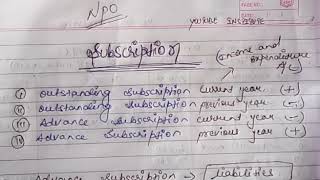 NPO
PAGE NO.
DATE
YOUTUBE
Subscription
(income and expenditure A/c
(i) outstanding subscription current year (+)
(ii) outstanding subscription previous year (-)
(iii) Advance subscription current year (-)
(iv) Advance subscription previous year (+)
subscription → liabilities